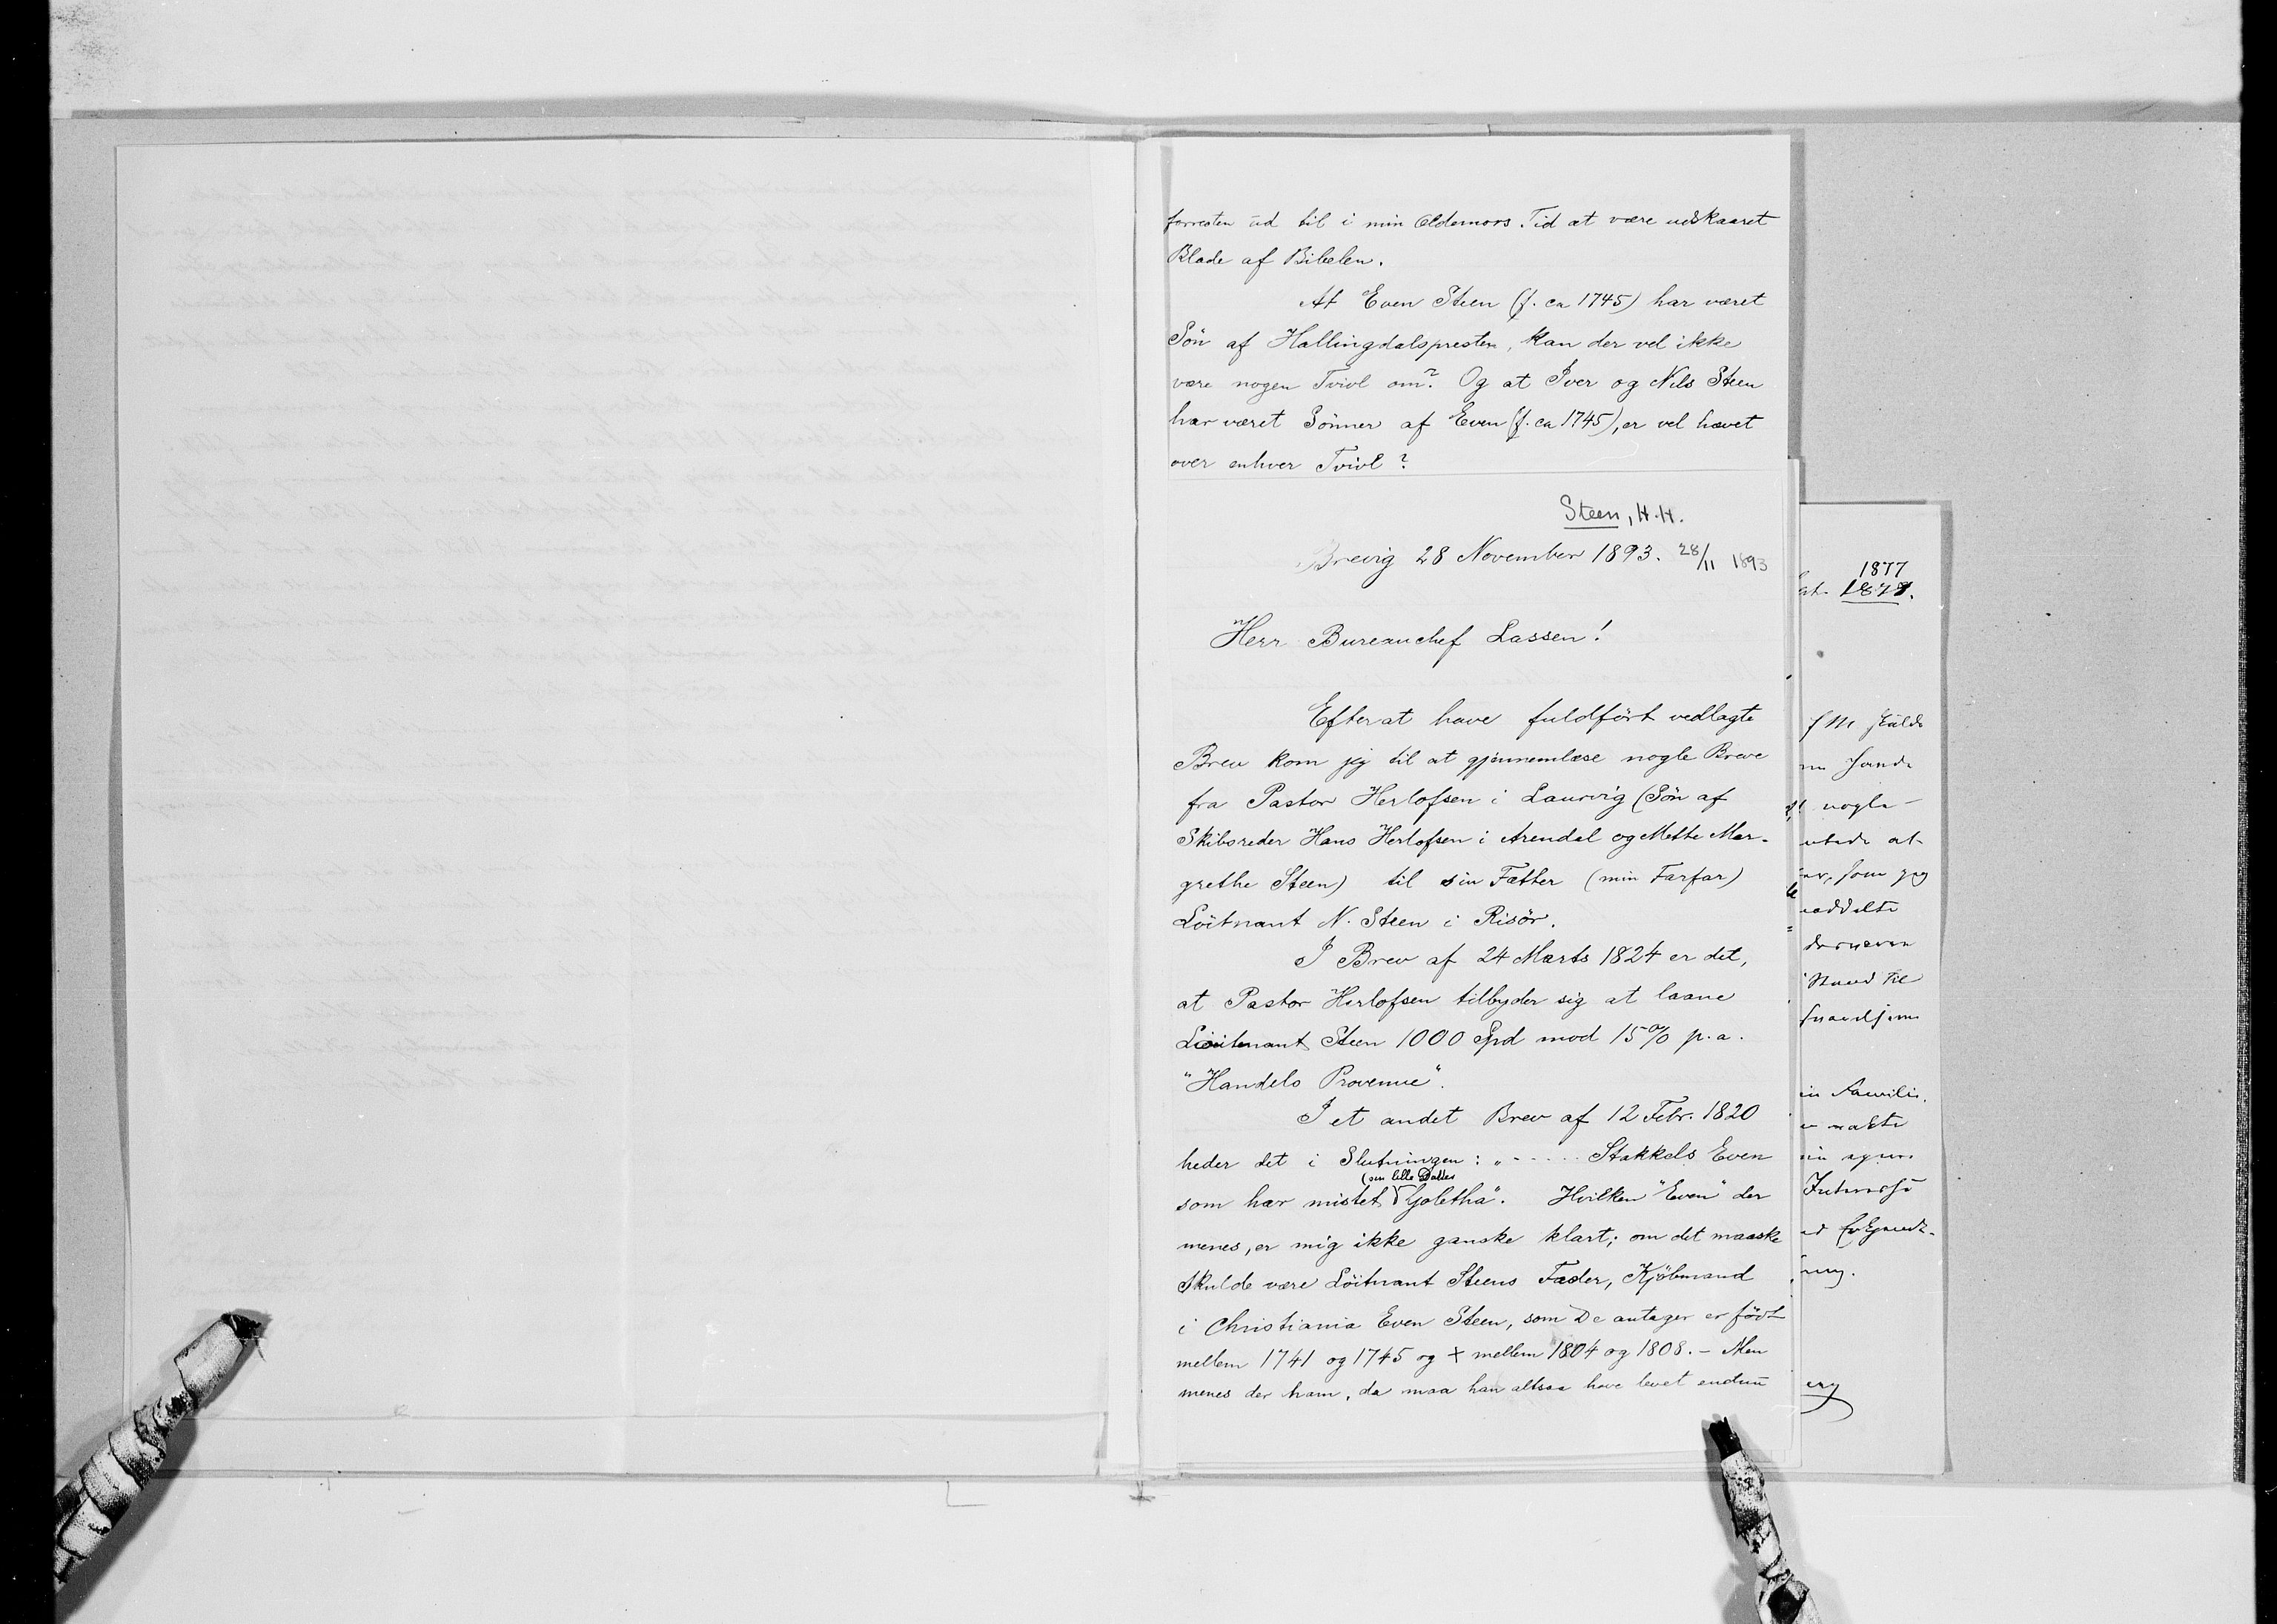 forresten ud til i min Oldemors Tid at være udskaaret
Blade af Bibelen.
At Even Steen (f. ca 1745) har været
Sön af Hallingdalspresten, kan der vel ikke
være nogen Tvivl om? Og at Iver og Nils Steen
har været Sönner af Even (f. ca 1745), er vel hævet
over enhver Tvivl?
Steen, H.H.
Brevig 28 November 1893. 28/11 1893
Herr Bureauchef Lassen!
Efterat have fuldfört vedlagte
Brev kom jeg til at gjennemlæse nogle Breve
fra Pastor Herlofsen i Laurvig (Sön af
Skibsreder Hans Herlofsen i Arendal og Mette Mar-
grethe Steen) til sin Fætter (min Farfar)
Löitnant N. Steen i Risör.
I Brev af 24 Marts 1824 er det,
at Pastor Herlofsen tilbyder sig at laane
Löitnant Steen 1000 Spd mod 15% p.a.
"Handels Provenue".
I et andet Brev af 12 Febr. 1820
heder det i Slutningen: "----- Stakkels Even
(sin lille Datter
som har mistet Goletha". Hvilken "Even" der
menes, er mig ikke ganske klart; om det maaske
skulde være Löitnant Steens Fader, Kjöbmand
i Christiania Even Steen, som De antager er födt
mellem 1741 og 1745 og + mellem 1804 og 1808. - Men
menes der ham, da maa han altsaa have levet endnu
1877
1878.
nogle
at
som jeg
Stand til
in Familie.